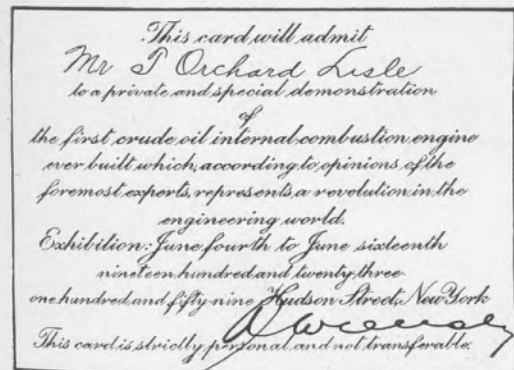 This card will admit
Mr T Orchard Lisle
to a private and special demonstration
of
the first crude oil internal combustion engine
ever built which, according to, opinions of the
foremost experts, represents, a revolution in the
engineering world.
Exhibition: June fourth to June sixteenth
nineteen hundred and twenty three
one hundred and fifty-nine Hudson Street, New York
This card is, strictly personal and not transferable.